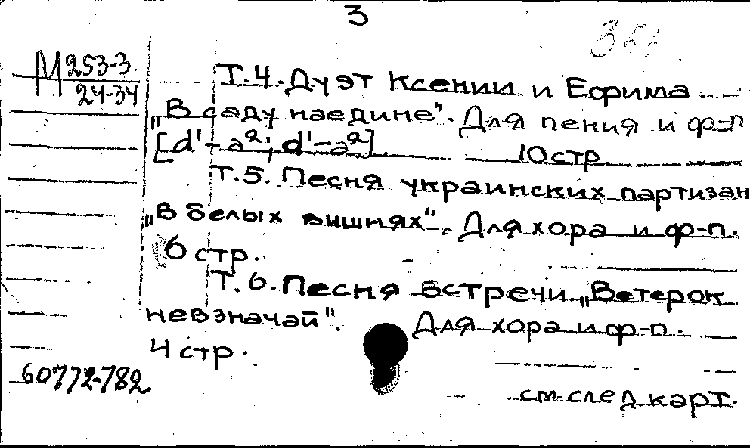 3
М 253-3
24-34
Т.4. Дуэт Ксении и Ефима
„В саду наедине". Для пения и ф-п
[d'-a²; d'-a²] 10 стр
Т.5. Песня украинских партизан
„В белых вишнях". Для хора и ф-п.
6 стр.
Т.6. Песня встречи „Ветерок
невзначай". Для хора и ф-п.
4 стр.
60772-782
см. след карт.